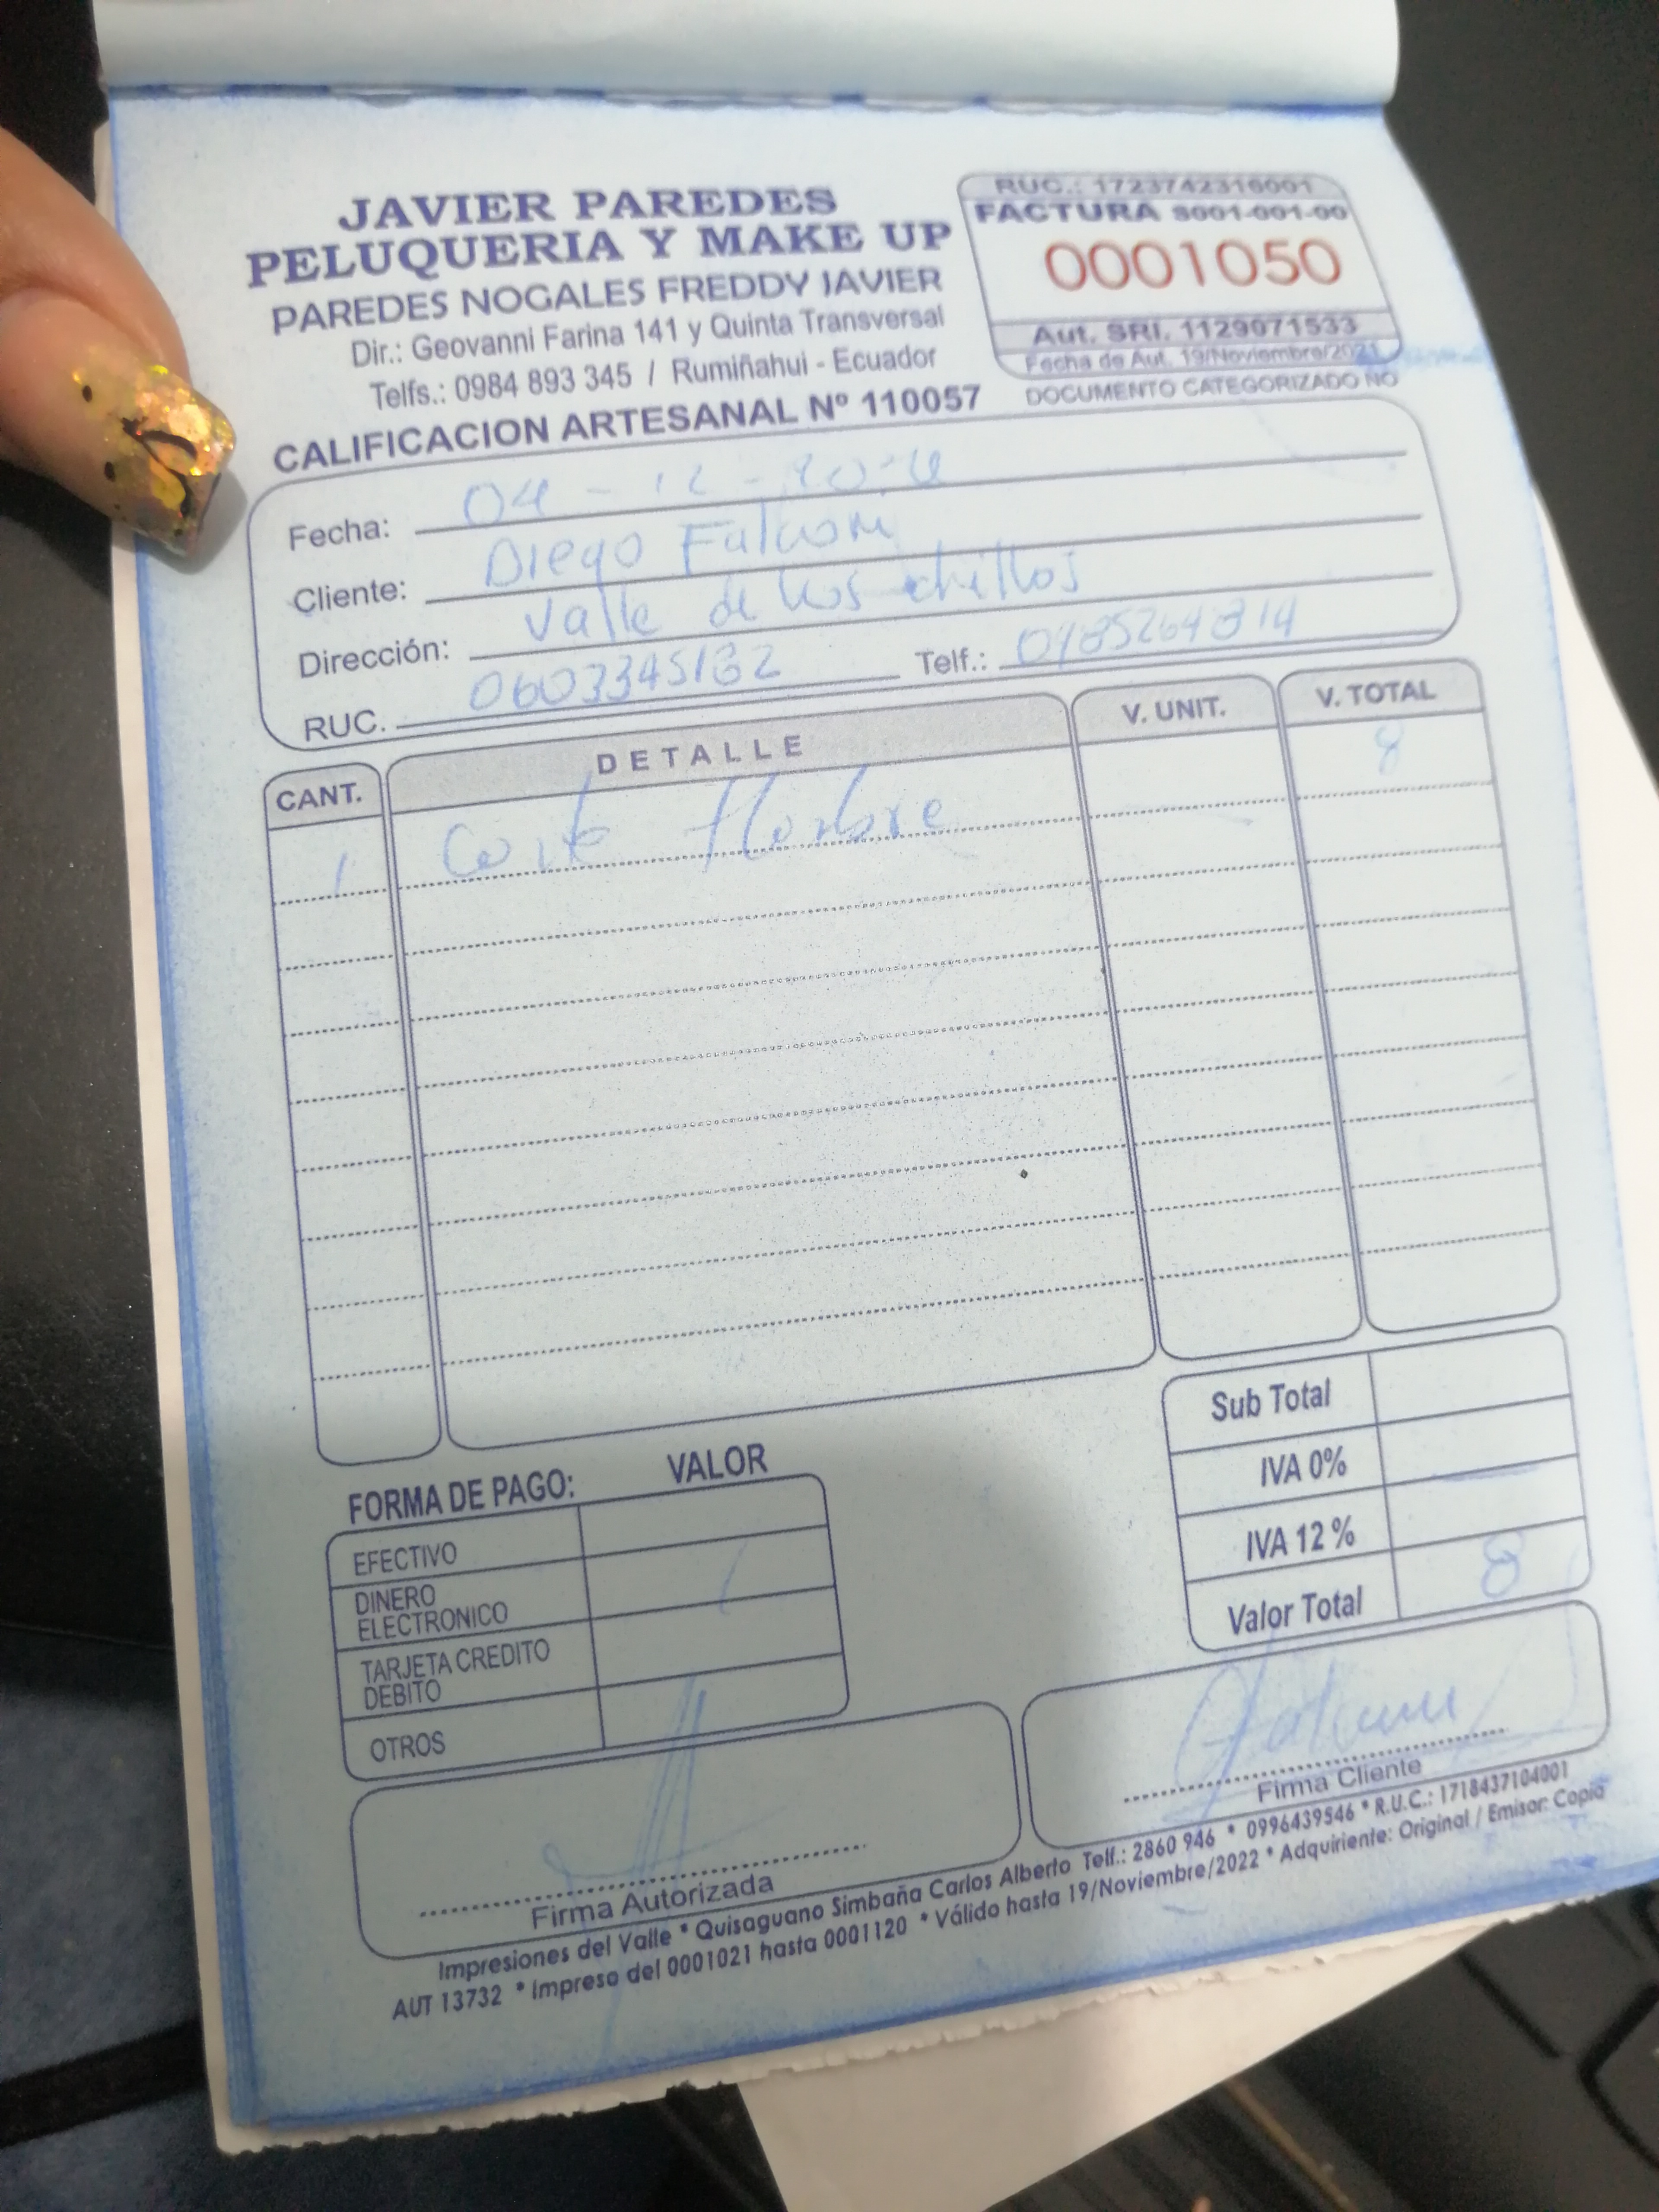 JAVIER PAREDES
PELUQUERIA Y MAKE UP
PAREDES NOGALES FREDDY JAVIER
Dir.: Geovanni Farina 141 y Quinta Transversal
Telfs.: 0984 893 345 / Rumiñahui - Ecuador
CALIFICACION ARTESANAL Nº 110057
RUC.: 1723742316001
FACTURA S001-001-00
0001050
Aut. SRI. 1129071533
Fecha de Aut. 19/Noviembre/2021
DOCUMENTO CATEGORIZADO NO
Fecha: 04 - 12 -
Cliente: Diego Falconi
Dirección: Valle de los chillos
RUC. 0603345132 Telf.: 0985264814
CANT. DETALLE V. UNIT. V. TOTAL
1 Corte Hombre 8
Sub Total
IVA 0%
IVA 12 %
Valor Total 8
FORMA DE PAGO: VALOR
EFECTIVO
DINERO
ELECTRONICO
TARJETA CREDITO
DEBITO
OTROS
Firma Autorizada
Firma Cliente
Impresiones del Valle * Quisaguano Simbaña Carlos Alberto Telf.: 2860 946 * 0996439546 * R.U.C.: 1718437104001
AUT 13732 * Impreso del 0001021 hasta 0001120 * Válido hasta 19/Noviembre/2022 * Adquiriente: Original / Emisor: Copia